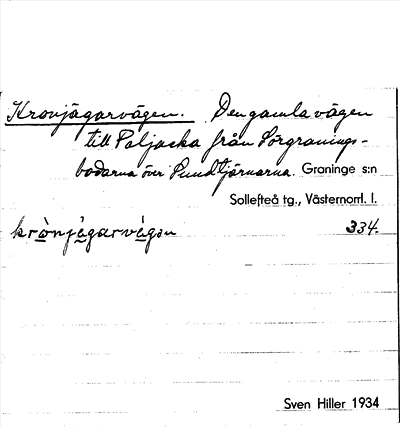 Kronjägarvägen. Den gamla vägen
till Paljacka från Sörgranings-
bodarna över Sundtjärnarna. Graninge s:n
Sollefteå tg., Västernorrl. l.
krònjä̀garvä̀gən 334.
Sven Hiller 1934